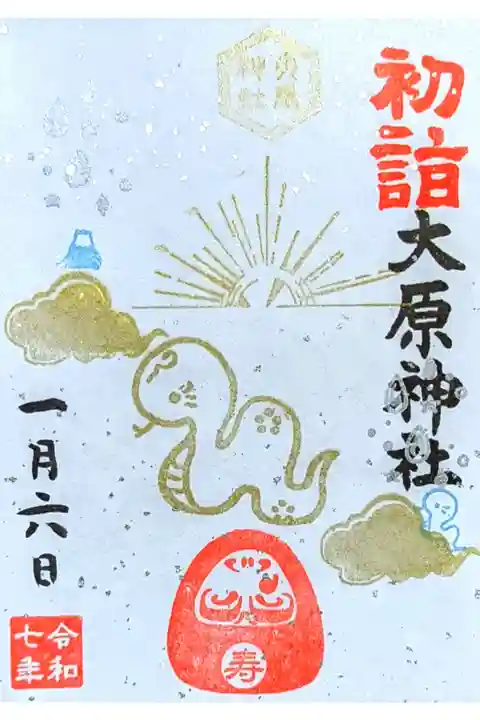 初詣
大原神社
大原
神社
一月六日
寿
令和
七年